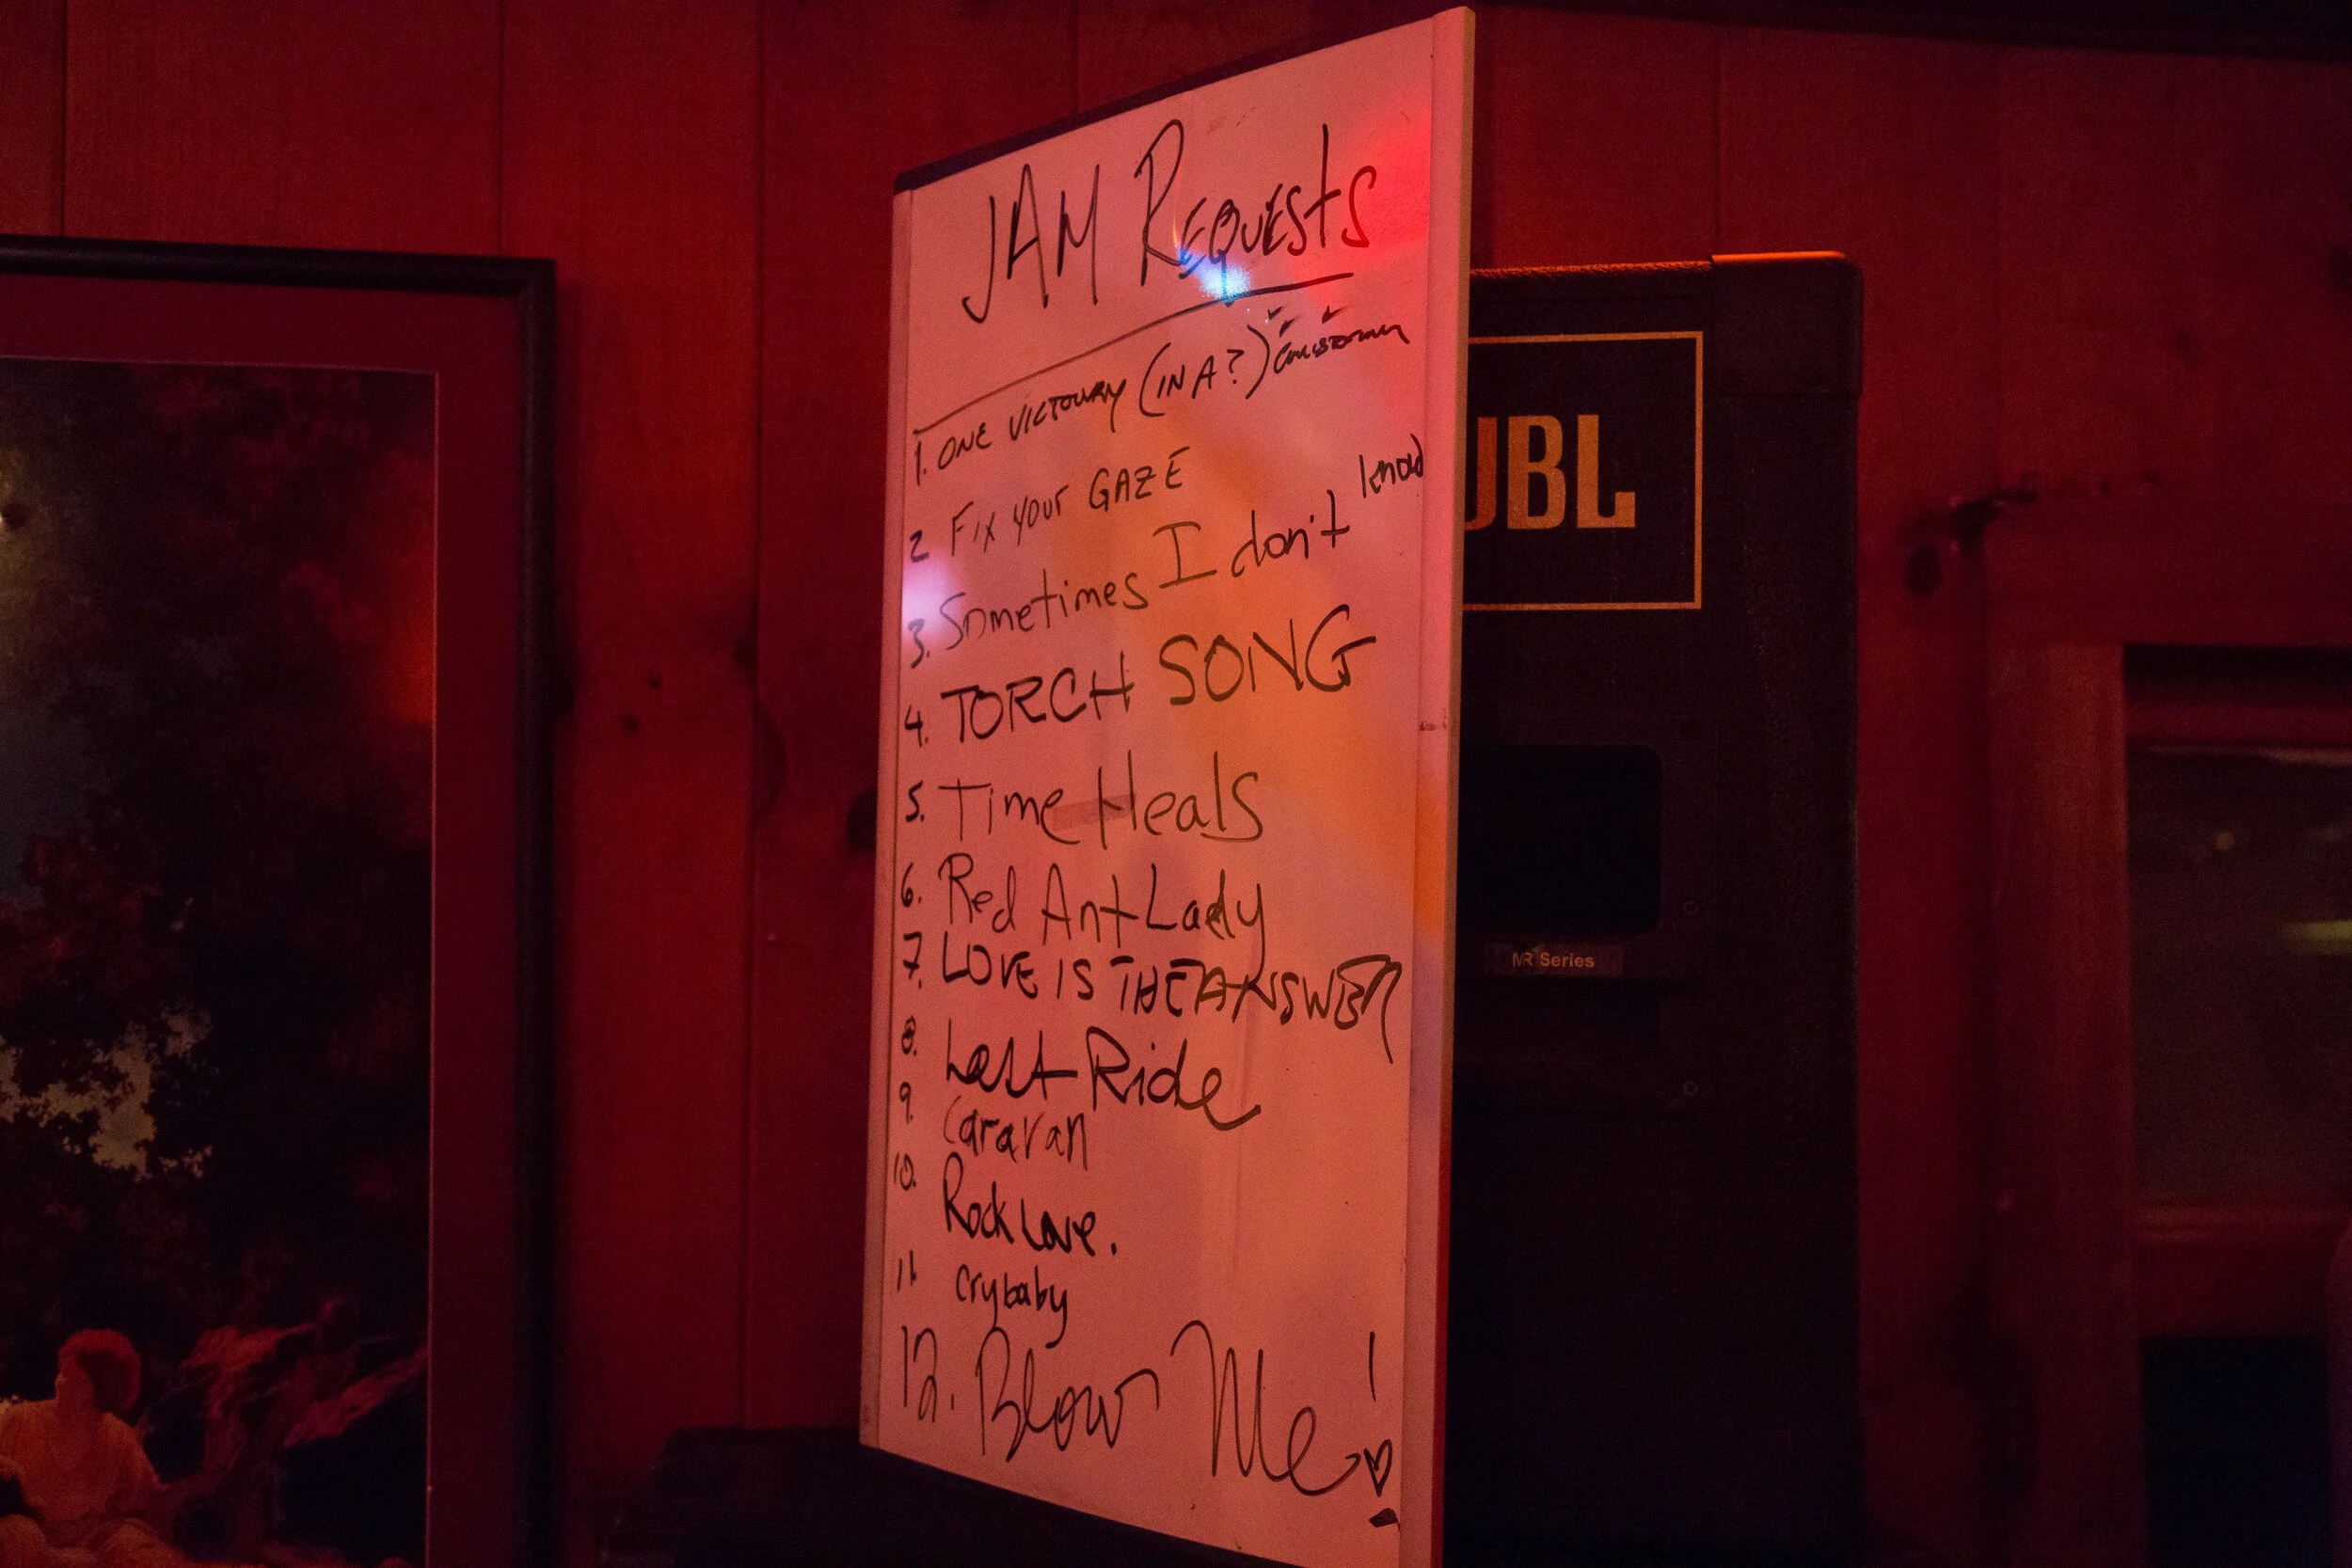 JAM REQUESTS
1. ONE VICTOURY (IN A?)
2 FIX YOUR GAZE
3. Sometimes I don't know
4. TORCH SONG
5. Time Heals
6. Red Ant Lady
7. LOVE IS THE ANSWER
8. Last Ride
9. Caravan
10. Rock Love.
11. Crybaby
12. Blow Me! ♡
JBL
MR Series